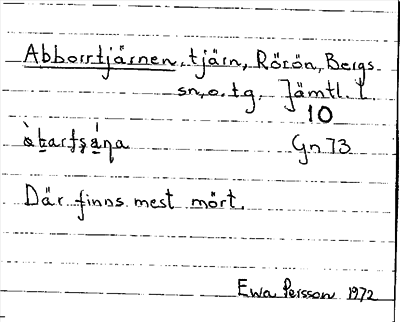 Abborrtjärnen, tjärn, Rörön, Bergs
sn, o. tg. Jämtl. l.
10
Gn 73
Där finns mest mört.
Ewa Persson 1972